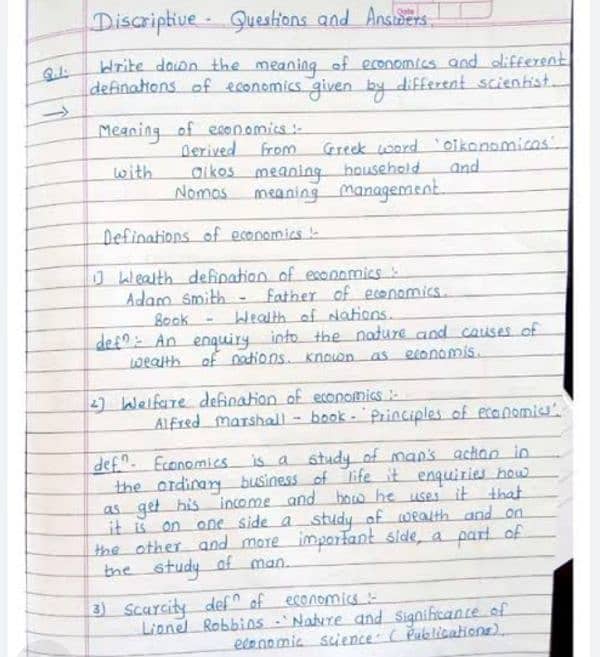 Date
Discriptive - Questions and Answers.
Q.1. Write down the meaning of economics and different
definations of economics given by different scientist.
→
Meaning of economics :-
Derived from Greek word 'oikonomicas'.
with oikos meaning household and
Nomos meaning management.
Definations of economics :-
1) Wealth defination of economics :-
Adam Smith - Father of economics.
Book - Wealth of Nations.
defn :- An enquiry into the nature and causes of
wealth of nations. known as economis.
2) Welfare defination of economics :-
Alfred marshall - book - 'Principles of economics'.
defn - Economics is a study of man's action in
the ordinary business of life it enquiries how
as get his income and how he uses it that
it is on one side a study of wealth and on
the other and more important side, a part of
the study of man.
3) Scarcity defn of economics :-
Lionel Robbins - 'Nature and significance of
economic science' (Publications).